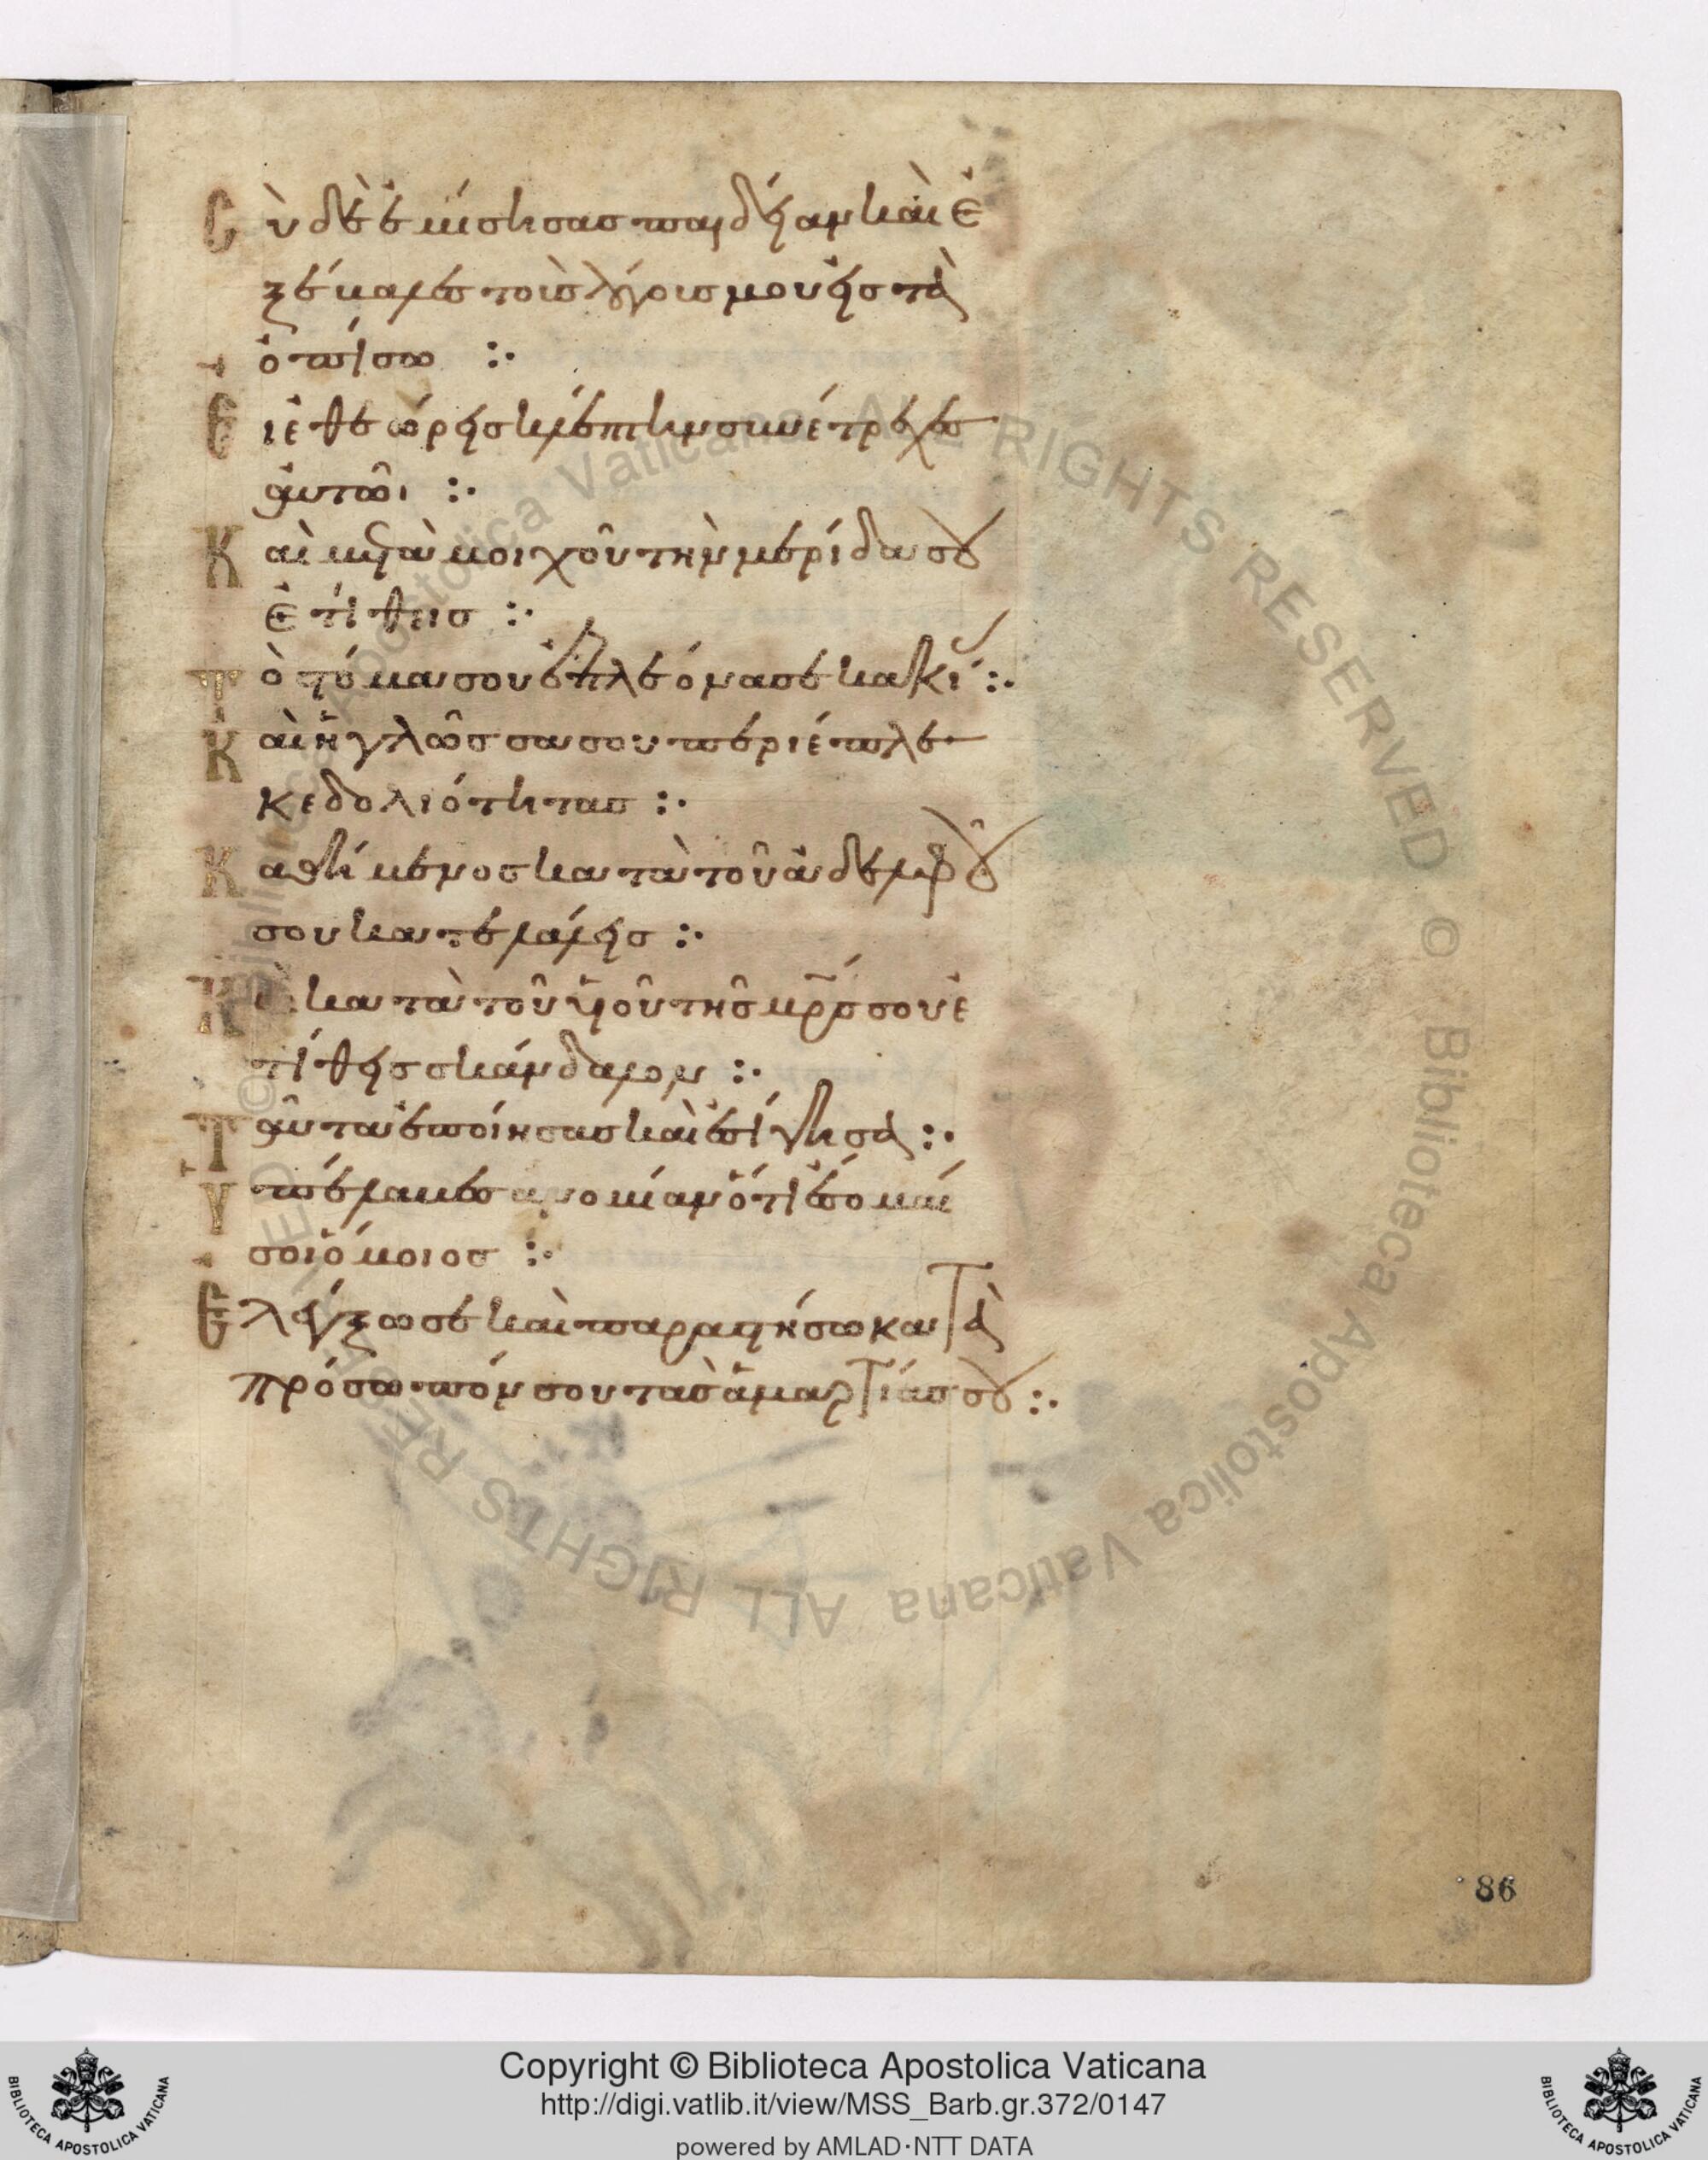 Σὺ δὲ ἐμίσησας παιδείαν καὶ ἐ
ξέβαλες τοὺς λόγους μου εἰς τὰ
ὀπίσω :·
Εἰ ἐθεώρεις κλέπτην συνέτρεχες
αὐτῶι :·
Καὶ μετὰ μοιχοῦ τὴν μερίδα σου
ἐτίθεις :·
Τὸ στόμα σου ἐπλεόνασε κακί :·
Καὶ ἡ γλῶσσα σου περιέπλε
κε δολιότητας :·
Καθήμενος κατὰ τοῦ ἀδελφοῦ
σου κατελάλεις :·
Κ κατὰ τοῦ υἱοῦ τῆς μρς σου ἐ
τίθεις σκάνδαλον :·
Ταῦτα ἐποίησας καὶ ἐσίγησα :·
Ὑπέλαβες ἀνομίαν ὅτι ἔσομαί
σοι ὅμοιος :·
Ἐλέγξω σε καὶ παραστήσω κατὰ
πρόσωπόν σου τὰς ἁμαρτίας σου :·
86
ALL RIGHTS RESERVED © Biblioteca Apostolica Vaticana ALL RIGHTS RESERVED © Biblioteca Apostolica Vaticana
Copyright © Biblioteca Apostolica Vaticana
http://digi.vatlib.it/view/MSS_Barb.gr.372/0147
powered by AMLAD·NTT DATA
BIBLIOTECA APOSTOLICA VATICANA
BIBLIOTECA APOSTOLICA VATICANA